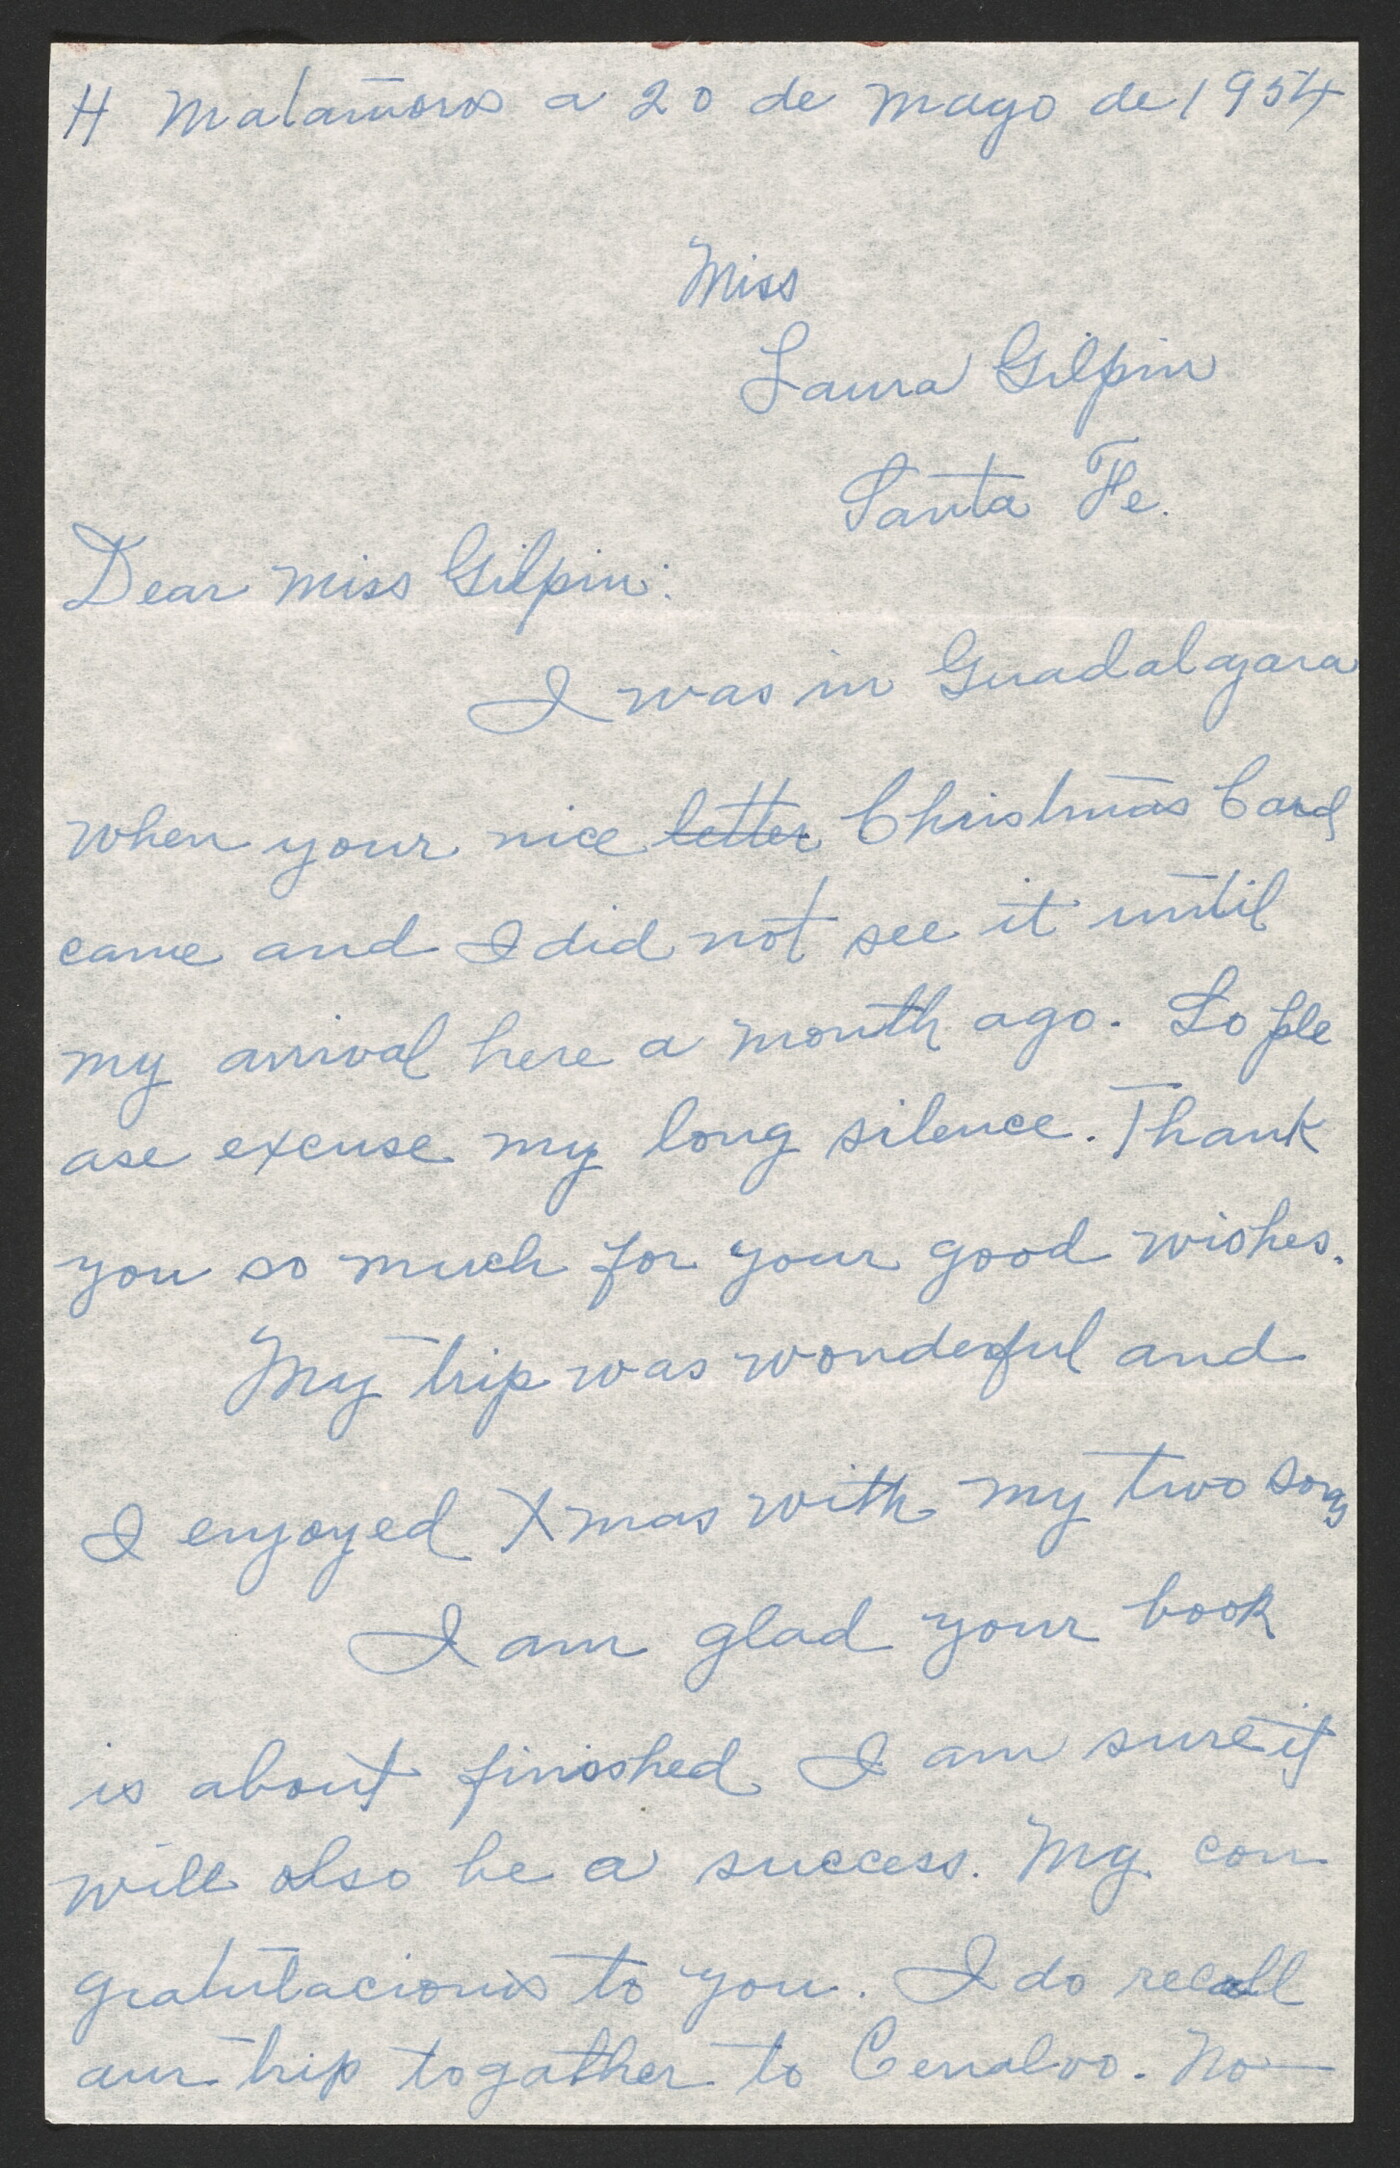 H Matamoros a 20 de mayo de 1954
Miss
Laura Gilpin
Santa Fe.
Dear Miss Gilpin:
I was in Guadalajara
when your nice letter Christmas Card
came and I did not see it until
my arrival here a month ago. So ple
ase excuse my long silence. Thank
you so much for your good wishes.
My trip was wonderful and
I enjoyed Xmas with my two sons
I am glad your book
is about finished I am sure it
will also be a success. My con
gratulacions to you. I do recall
our trip togather to Cerralvo. No